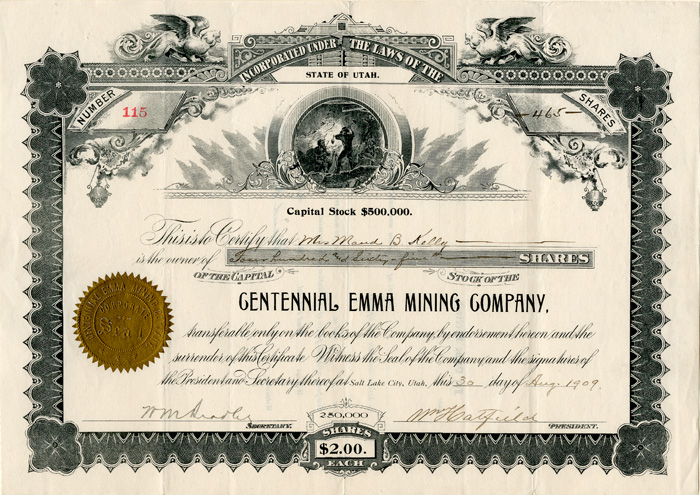 INCORPORATED UNDER THE LAWS OF THE
STATE OF UTAH.
NUMBER
115
465
SHARES
Capital Stock $500,000.
This is to Certify that Mrs Maud B. Kelly
is the owner of Four hundred and Sixty-five SHARES
OF THE CAPITAL STOCK OF THE
CENTENNIAL EMMA MINING COMPANY,
transferable only on the books of the Company by endorsement hereon and the
surrender of this Certificate Witness the Seal of the Company and the signatures of
the President and Secretary thereof at Salt Lake City, Utah, this 30 day of Aug. 1909.
CENTENNIAL EMMA MINING
Seal
Wm
SECRETARY.
Wm Hatfield
PRESIDENT.
250,000
SHARES
$2.00.
EACH